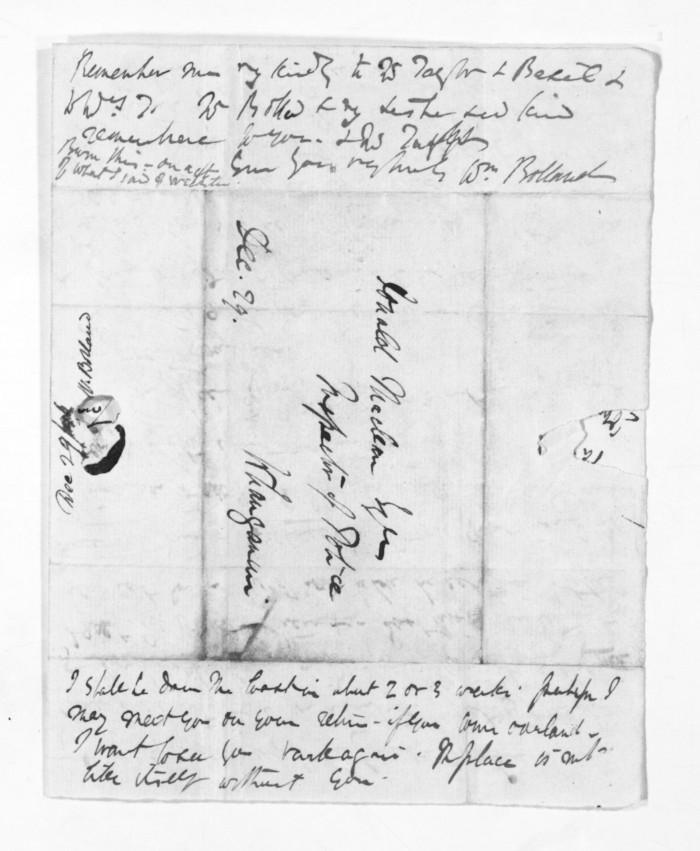 Remember me very kindly to Mr Taylor & Basil &
to Mrs T. Mrs Bolland & my sister send kind
remembrance to you. & Mr
Burn this - on acct
of what I said of
Ever yours very truly Wm Bolland
Dec. 29.
Donald McLean Esqre
Inspector of Police
Whanganui.
W. Bolland
Dec 29
I shall be down the coast in about 2 or 3 weeks. Perhaps I
may meet you on your return - if you come overland.
I want to see you back again. The place is not
like itself without you.